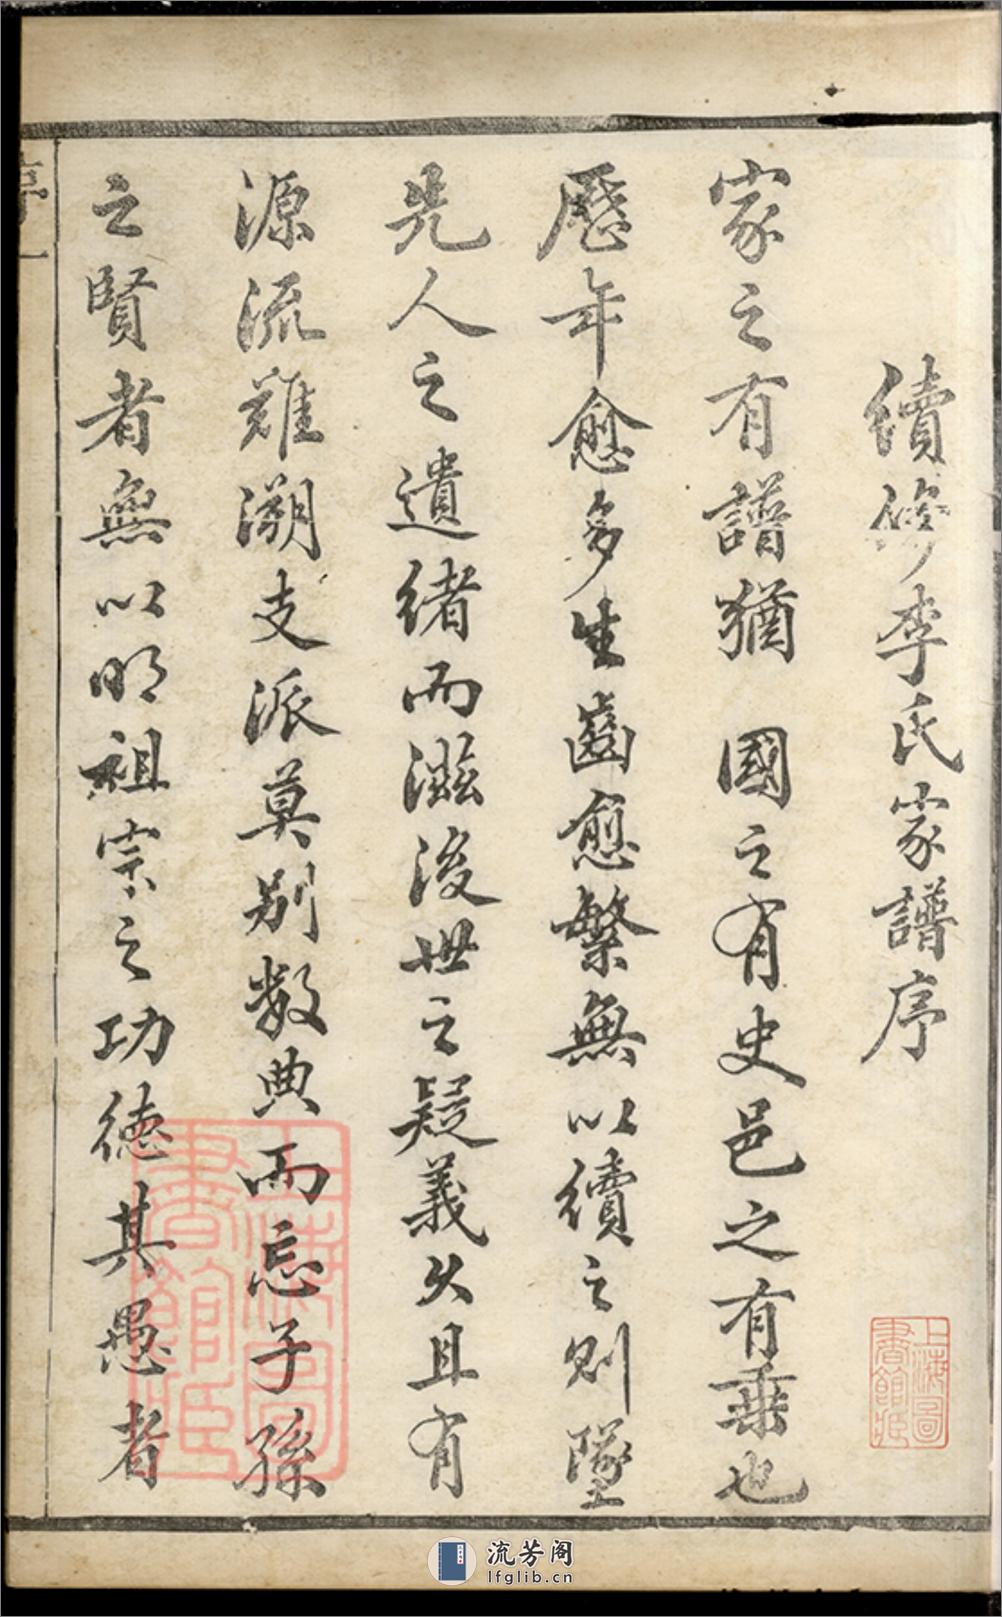 續修李氏家譜序
家之有譜猶 國之有史邑之有乗也
歷年愈多生齒愈繁無以續之則墜
先人之遺緒而滋後世之疑義久且有
源流難溯支派莫別數典而忘子孫
之賢者無以明祖宗之功德其愚者
序 一
上海圖書館藏
上海圖書館藏
流芳阁
lfglib.cn